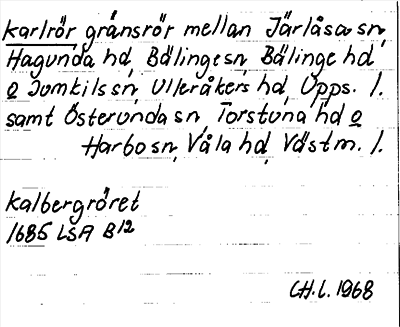 Karlrör, gränsrör mellan Järlåsa sn,
Hagunda hd, Bälinge sn, Bälinge hd
o Jumkils sn, Ulleråkers hd, Upps. l.
samt Österunda sn, Torstuna hd o
Harbo sn, Våla hd, Västm. l.
Kalbergröret
1685 LSA B12
CH.L. 1968